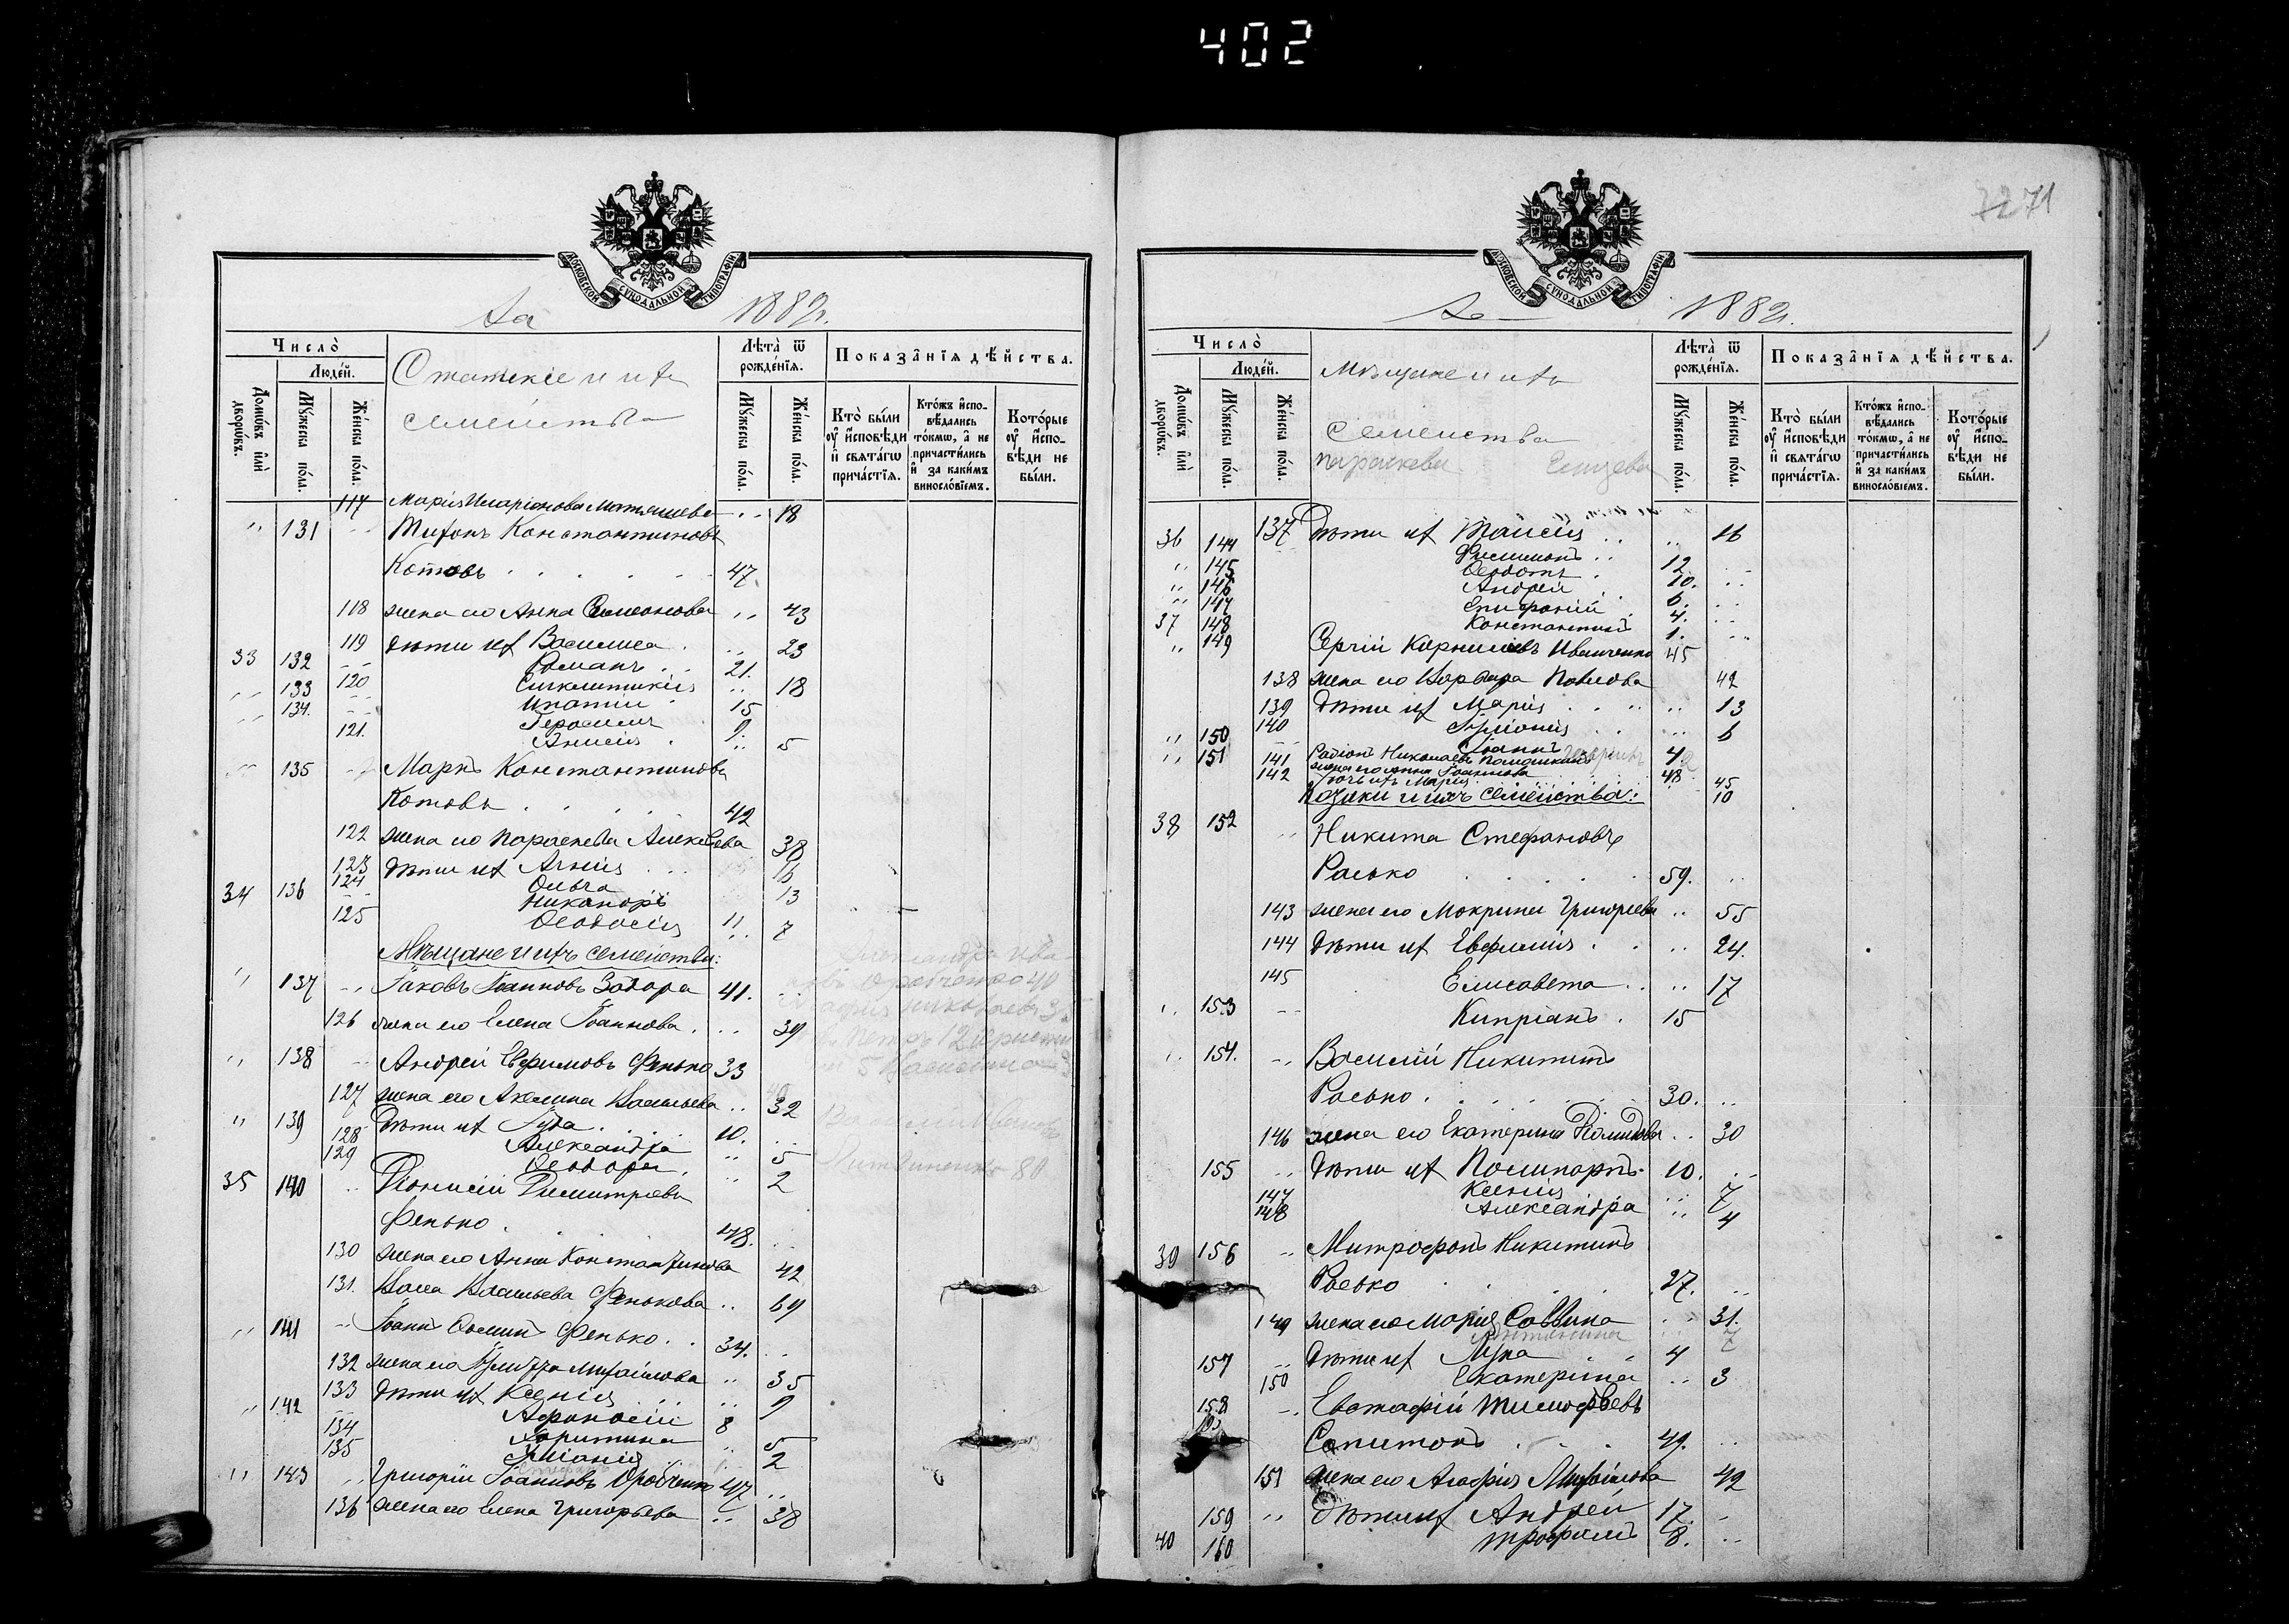 402
МОСКОВСКОЙ СѴНОДАЛЬНОЙ ТИПОГРАФІИ
За 1882г.
Число̀
Домѡ́въ и҆лѝ дворѡ́въ.
Люде́й.
Мꙋ́жеска по́ла.
Же́нска по́ла.
Статскіе и ихъ
семейства
Лѣта̀ ѿ рожде́нїѧ.
Мꙋ́жеска по́ла.
Же́нска по́ла.
Показа̑нїѧ дѣ́йства.
Кто̀ бы́ли оу҆ и҆сповѣ́ди и҆ свѧта́гѡ прича́стїѧ.
Кто́жъ и҆спо-вѣ́дались то́кмѡ, а҆ не причасти́лись и҆ за каки́мъ винослові́емъ.
Кото́рые оу҆ и҆спо-вѣ́ди не бы́ли.
117 Марія Иларіонова 18
131 Тихонъ Константиновъ
Котовъ 47
118 жена его Анна Симеонова 43
119 дѣти ихъ Василиса 23
33 132 Романъ 21.
133 120 Синклитикія 18
134. Ипатій 15
Герасимъ 9.
121. Анисія 5
135 Маркъ Константиновъ
Котовъ 42
122 жена его Параскева Алексѣева 38
123 дѣти ихъ Агнія 16
124 Ольга 13
34 136 Никаноръ 11
125 Ѳеодосія 7
Мѣщане и ихъ семейства:
137 Іаковъ Іоанновъ 41.
126 жена его Елена Іоаннова 39
138 Андрей Евфимовъ Фенько 33
127 жена его Акилина Васильева 32
139 Дѣти ихъ Іуда 10.
128 Александра 5
129 Ѳеодора 2
35 140 Діонисій Димитріевъ
Фенько 48.
130 жена его Анна Константинова 42
131. Васса Васильева Фенькова 69
141 Іоаннъ Фенько 34.
132 жена его Михайлова 35
133 дѣти ихъ Ксенія 9
142 Афанасій 8
134 Харитина 5
135 2
143 Григорій Іоанновъ Оробченко 47
136 жена его Елена Григорьева 38
7271
МОСКОВСКОЙ СѴНОДАЛЬНОЙ ТИПОГРАФІИ
За 1882г.
Число̀
Домѡ́въ и҆лѝ дворѡ́въ.
Люде́й.
Мꙋ́жеска по́ла.
Же́нска по́ла.
Мѣщане и ихъ
семейства
Параскева
Лѣта̀ ѿ рожде́нїѧ.
Мꙋ́жеска по́ла.
Же́нска по́ла.
Показа̑нїѧ дѣ́йства.
Кто̀ бы́ли оу҆ и҆сповѣ́ди и҆ свѧта́гѡ прича́стїѧ.
Кто́жъ и҆спо-вѣ́дались то́кмѡ, а҆ не причасти́лись и҆ за каки́мъ винослові́емъ.
Кото́рые оу҆ и҆спо-вѣ́ди не бы́ли.
137 Дѣти ихъ Таисія 16
36 144 Филимонъ 12
145 Ѳеодотъ 10.
146 Андрей 6.
147 Епифаній 4.
37 148 Константинъ 1.
149 Сергій Корниліевъ Иванченко 45
138 жена его Варвара Павлова 42
139 Дѣти ихъ Марія 13
140 6
150 Іоаннъ
151 141 жена его Анна Іоаннова 48 45
142 дочь ихъ Марія 10
Козаки и ихъ семейства:
38 152 Никита Стефановъ
Расько 59.
143 жена его Мокрина Григорьева 55
144 дѣти ихъ Евфимія 24.
145 Елисавета 17
153 Кипріанъ 15
154. Василій Никитинъ
Расько 30.
146 жена его Екатерина 30
155 Дѣти ихъ Поликарпъ 10.
147 Ксенія 7
148 Александра 4
39 156 Митрофанъ Никитинъ
Расько 27.
149 жена его Марія Саввина 31.
157 Дѣти ихъ Лука 4
150 Екатерина 3
158 Евстафій Тимофѣевъ
Сапитонъ 49.
151 жена его Агафія Михайлова 42
159 Дѣти ихъ Андрей 17.
40 160 Трофимъ 8.